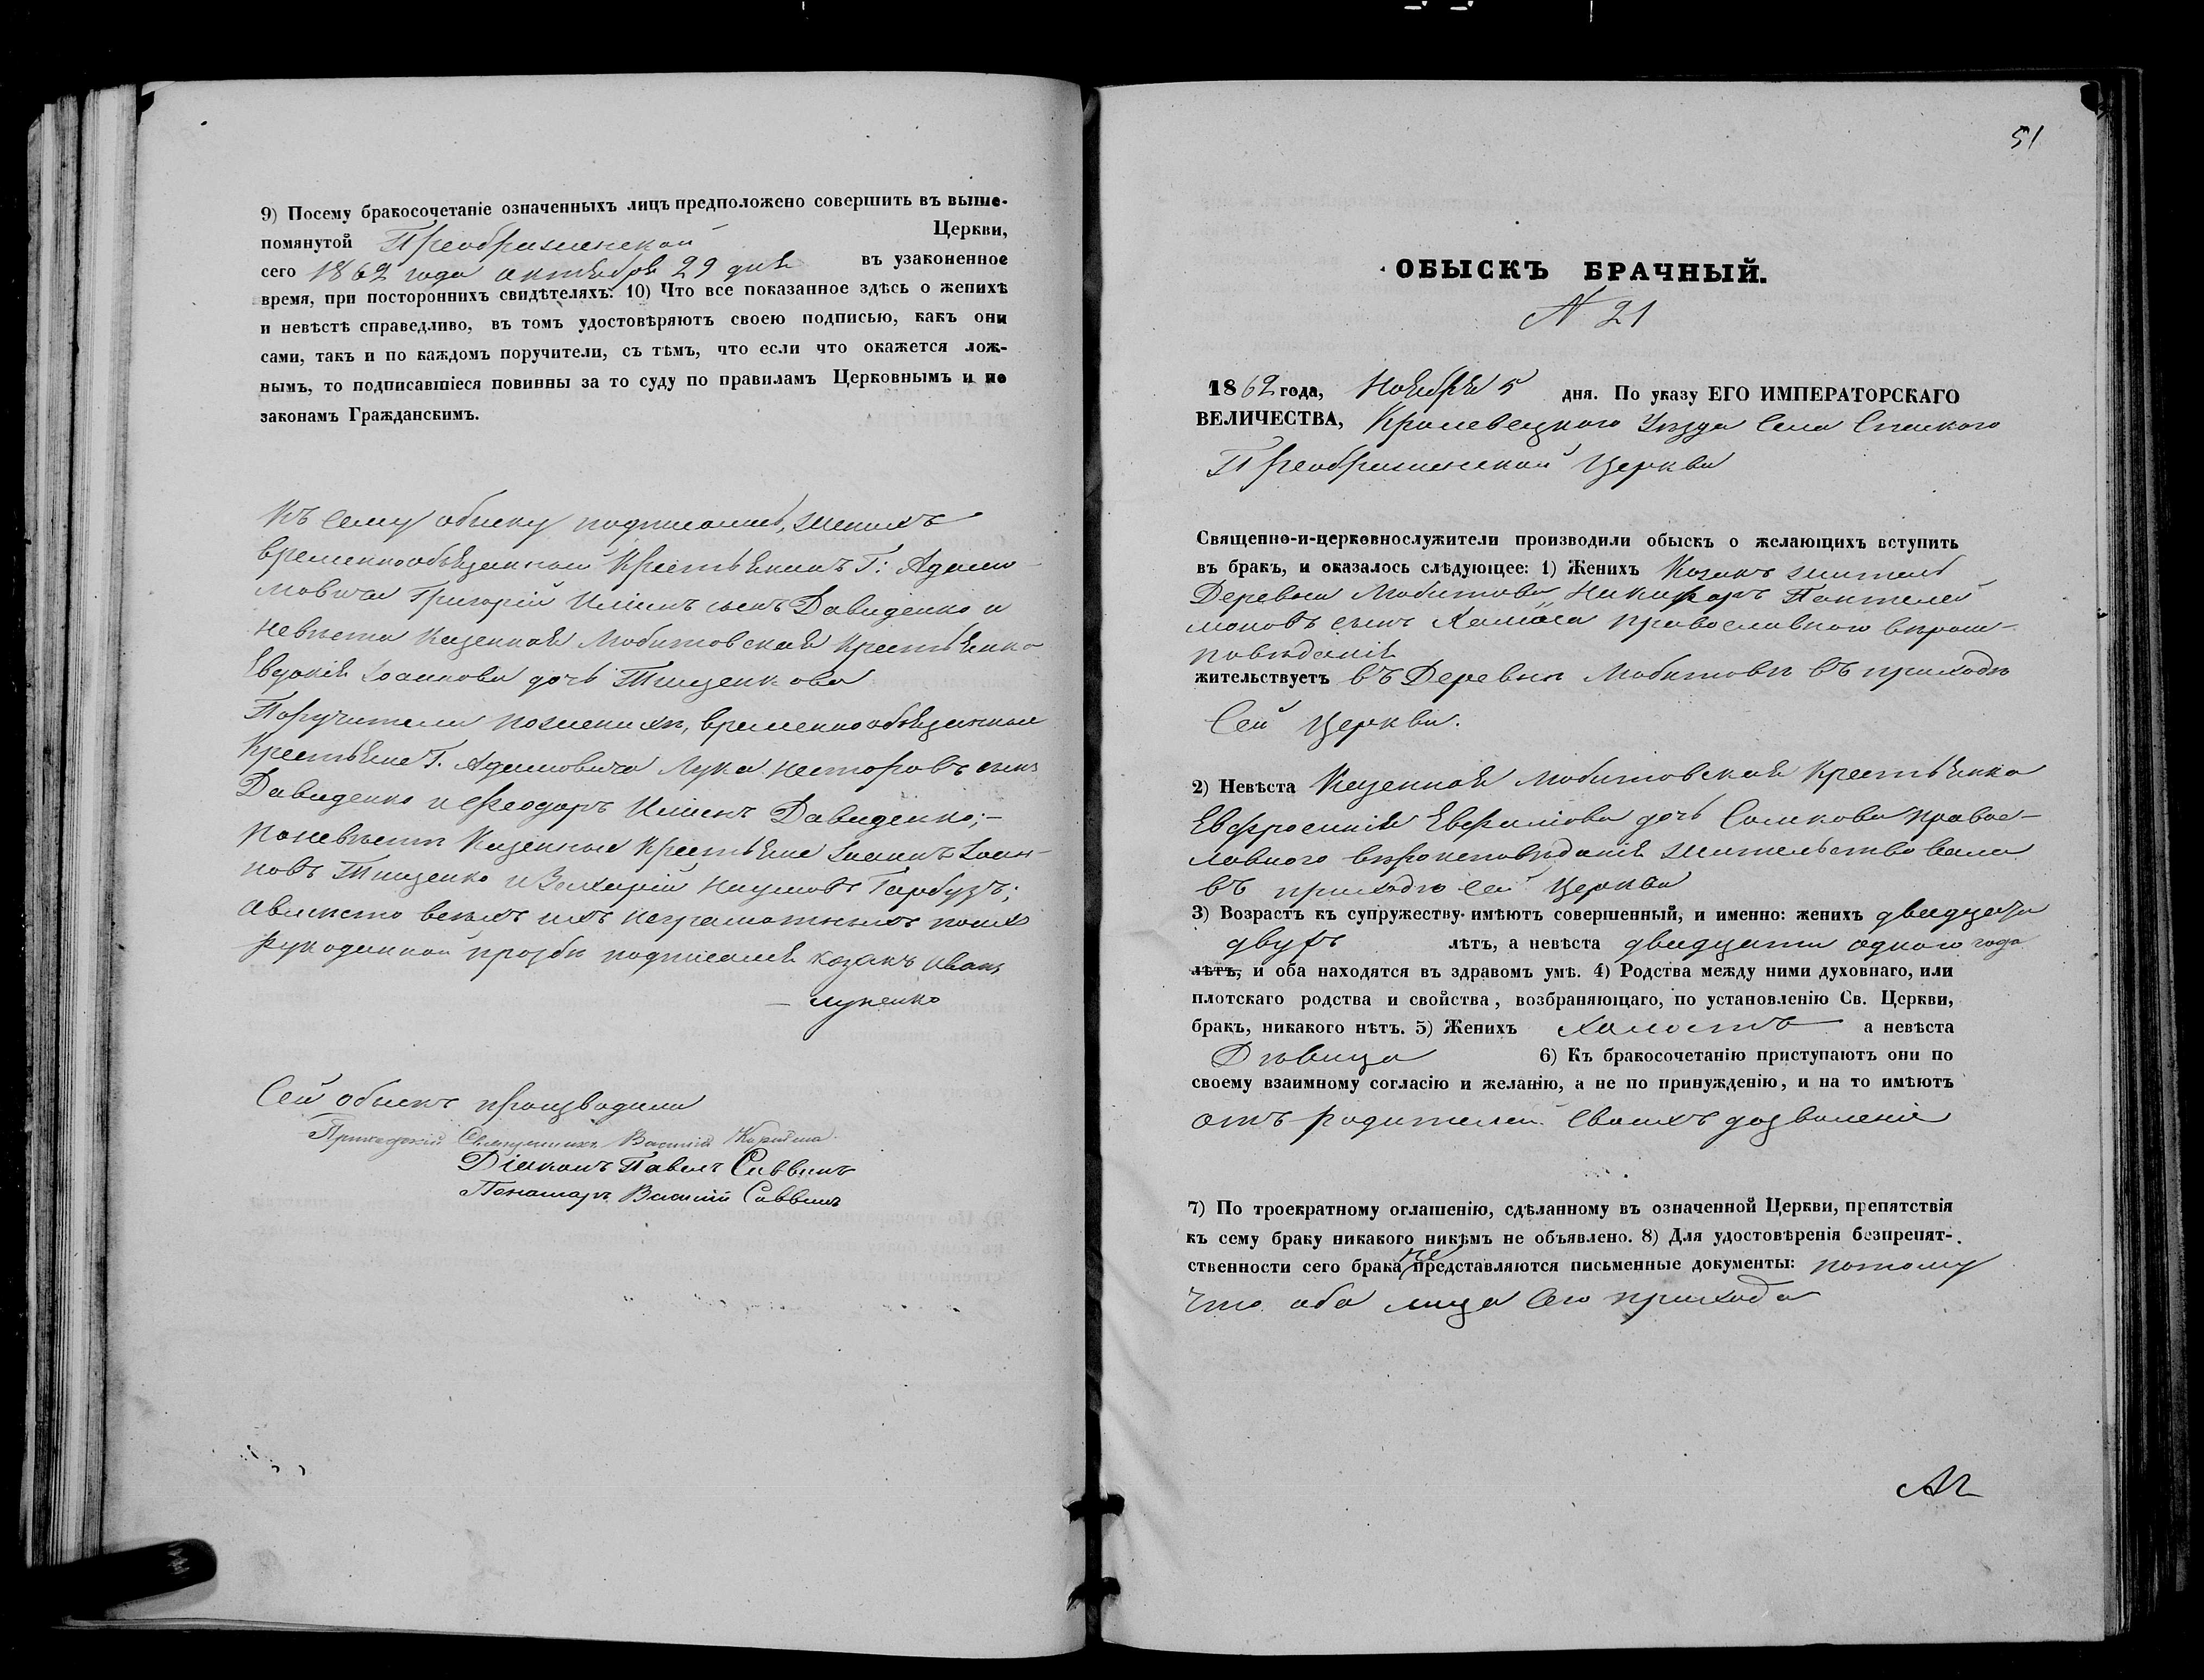 9) Посему бракосочетаніе означенныхъ лицъ предположено совершить въ выше-
помянутой Преображенской Церкви,
сего 1862 года октября 29 дня въ узаконенное
время, при постороннихъ свидѣтеляхъ. 10) Что все показанное здѣсь о женихѣ
и невѣстѣ справедливо, въ томъ удостовѣряютъ своею подписью, какъ они
сами, такъ и по каждомъ поручители, съ тѣмъ, что если что окажется лож-
нымъ, то подписавшіеся повинны за то суду по правиламъ Церковнымъ и по
законамъ Гражданскимъ.
Къ сему обыску подписались, женихъ
временнообязанной Крестьянинъ Г: Адамо-
мовича Григорій Иліинъ сынъ Давиденко и
невѣста Казенная Любитовская Крестьянка
Евдокія Іоаннова дочь Тищенкова
Поручители поженихѣ, временнообязанные
Крестьяне Г. Адамовича Лука Несторовъ сынъ
Давиденко и Феодоръ Иліинъ Давиденко;-
поневѣстѣ Казенные Крестьяне Іоаннъ Іоан-
новъ Тищенко и Захарій Наумовъ Гарбузъ;
авмѣсто всѣхъ ихъ неграмотныхъ поихъ
рукоданной прозбѣ подписался козакъ Иванъ
Сей обыскъ производили
Приходскій Священникъ Василій
Діаконъ Павелъ Саввинъ
Пономарь Василій Саввинъ
51
ОБЫСКЪ БРАЧНЫЙ.
N 21
1862 года, Ноября 5 дня. По указу ЕГО ИМПЕРАТОРСКАГО
ВЕЛИЧЕСТВА, Кролевецкаго Уѣзда Села Спаского
Преображенской Церкви
Священно-и-церковнослужители производили обыскъ о желающихъ вступить
въ бракъ, и оказалось слѣдующее: 1) Женихъ Козакъ житель
Деревни Любитова Никифоръ Пантелей
моновъ сынъ православного вѣрои-
повѣданія
жительствуетъ въ Деревнѣ Любитовѣ въ приходѣ
Сей Церкви.
2) Невѣста Казенная Любитовская Крестьянка
Евфросинія Евфимова дочь правос-
лавного вѣроисповѣданія жительствовала
въ приходѣ сей Церкви
3) Возрастъ къ супружеству имѣютъ совершенный, и именно: женихъ двадцати
двухъ лѣтъ, а невѣста двадцати одного года
лѣтъ, и оба находятся въ здравомъ умѣ. 4) Родства между ними духовнаго, или
плотскаго родства и свойства, возбраняющаго, по установленію Св. Церкви,
бракъ, никакого нѣтъ. 5) Женихъ холостъ а невѣста
Дѣвица 6) Къ бракосочетанію приступаютъ они по
своему взаимному согласію и желанію, а не по принужденію, и на то имѣютъ
отъ родителей своихъ дозволеніе
7) По троекратному оглашенію, сдѣланному въ означенной Церкви, препятствія
къ сему браку никакого никѣмъ не объявлено. 8) Для удостовѣренія безпрепят-
ственности сего брака не представляются письменные документы: потому
что оба лица сего прихода